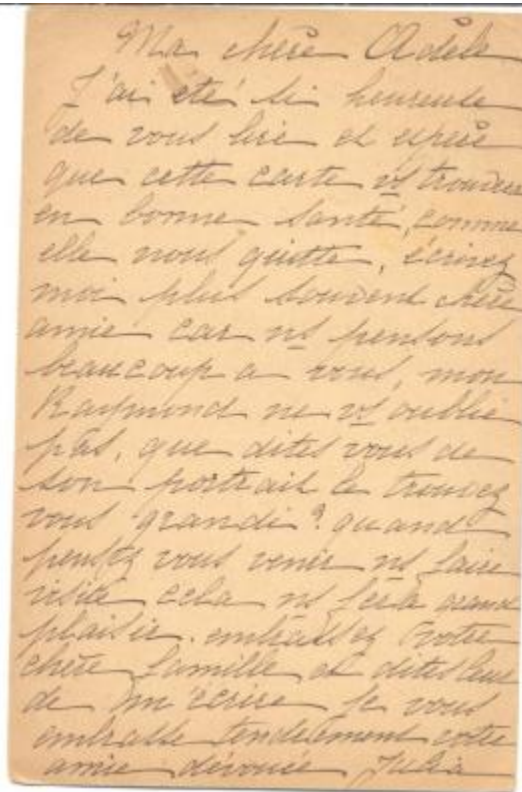 Ma chère Adèle
J'ai été si heureuse
de vous lire et espère
que cette carte vs trouvera
en bonne santé, comme
elle nous quitte, écrivez
moi plus souvent chère
amie car ns pensons
beaucoup a vous, mon
Raymond ne vs oublie
pas, que dites vous de
son portrait le trouvez
vous grandi? quand
pensez vous venir ns faire
visite cela ns fera grand
plaisir. embrassez votre
chère famille et dites leur
de m'écrire je vous
embrasse tendrement votre
amie dévouée Julia